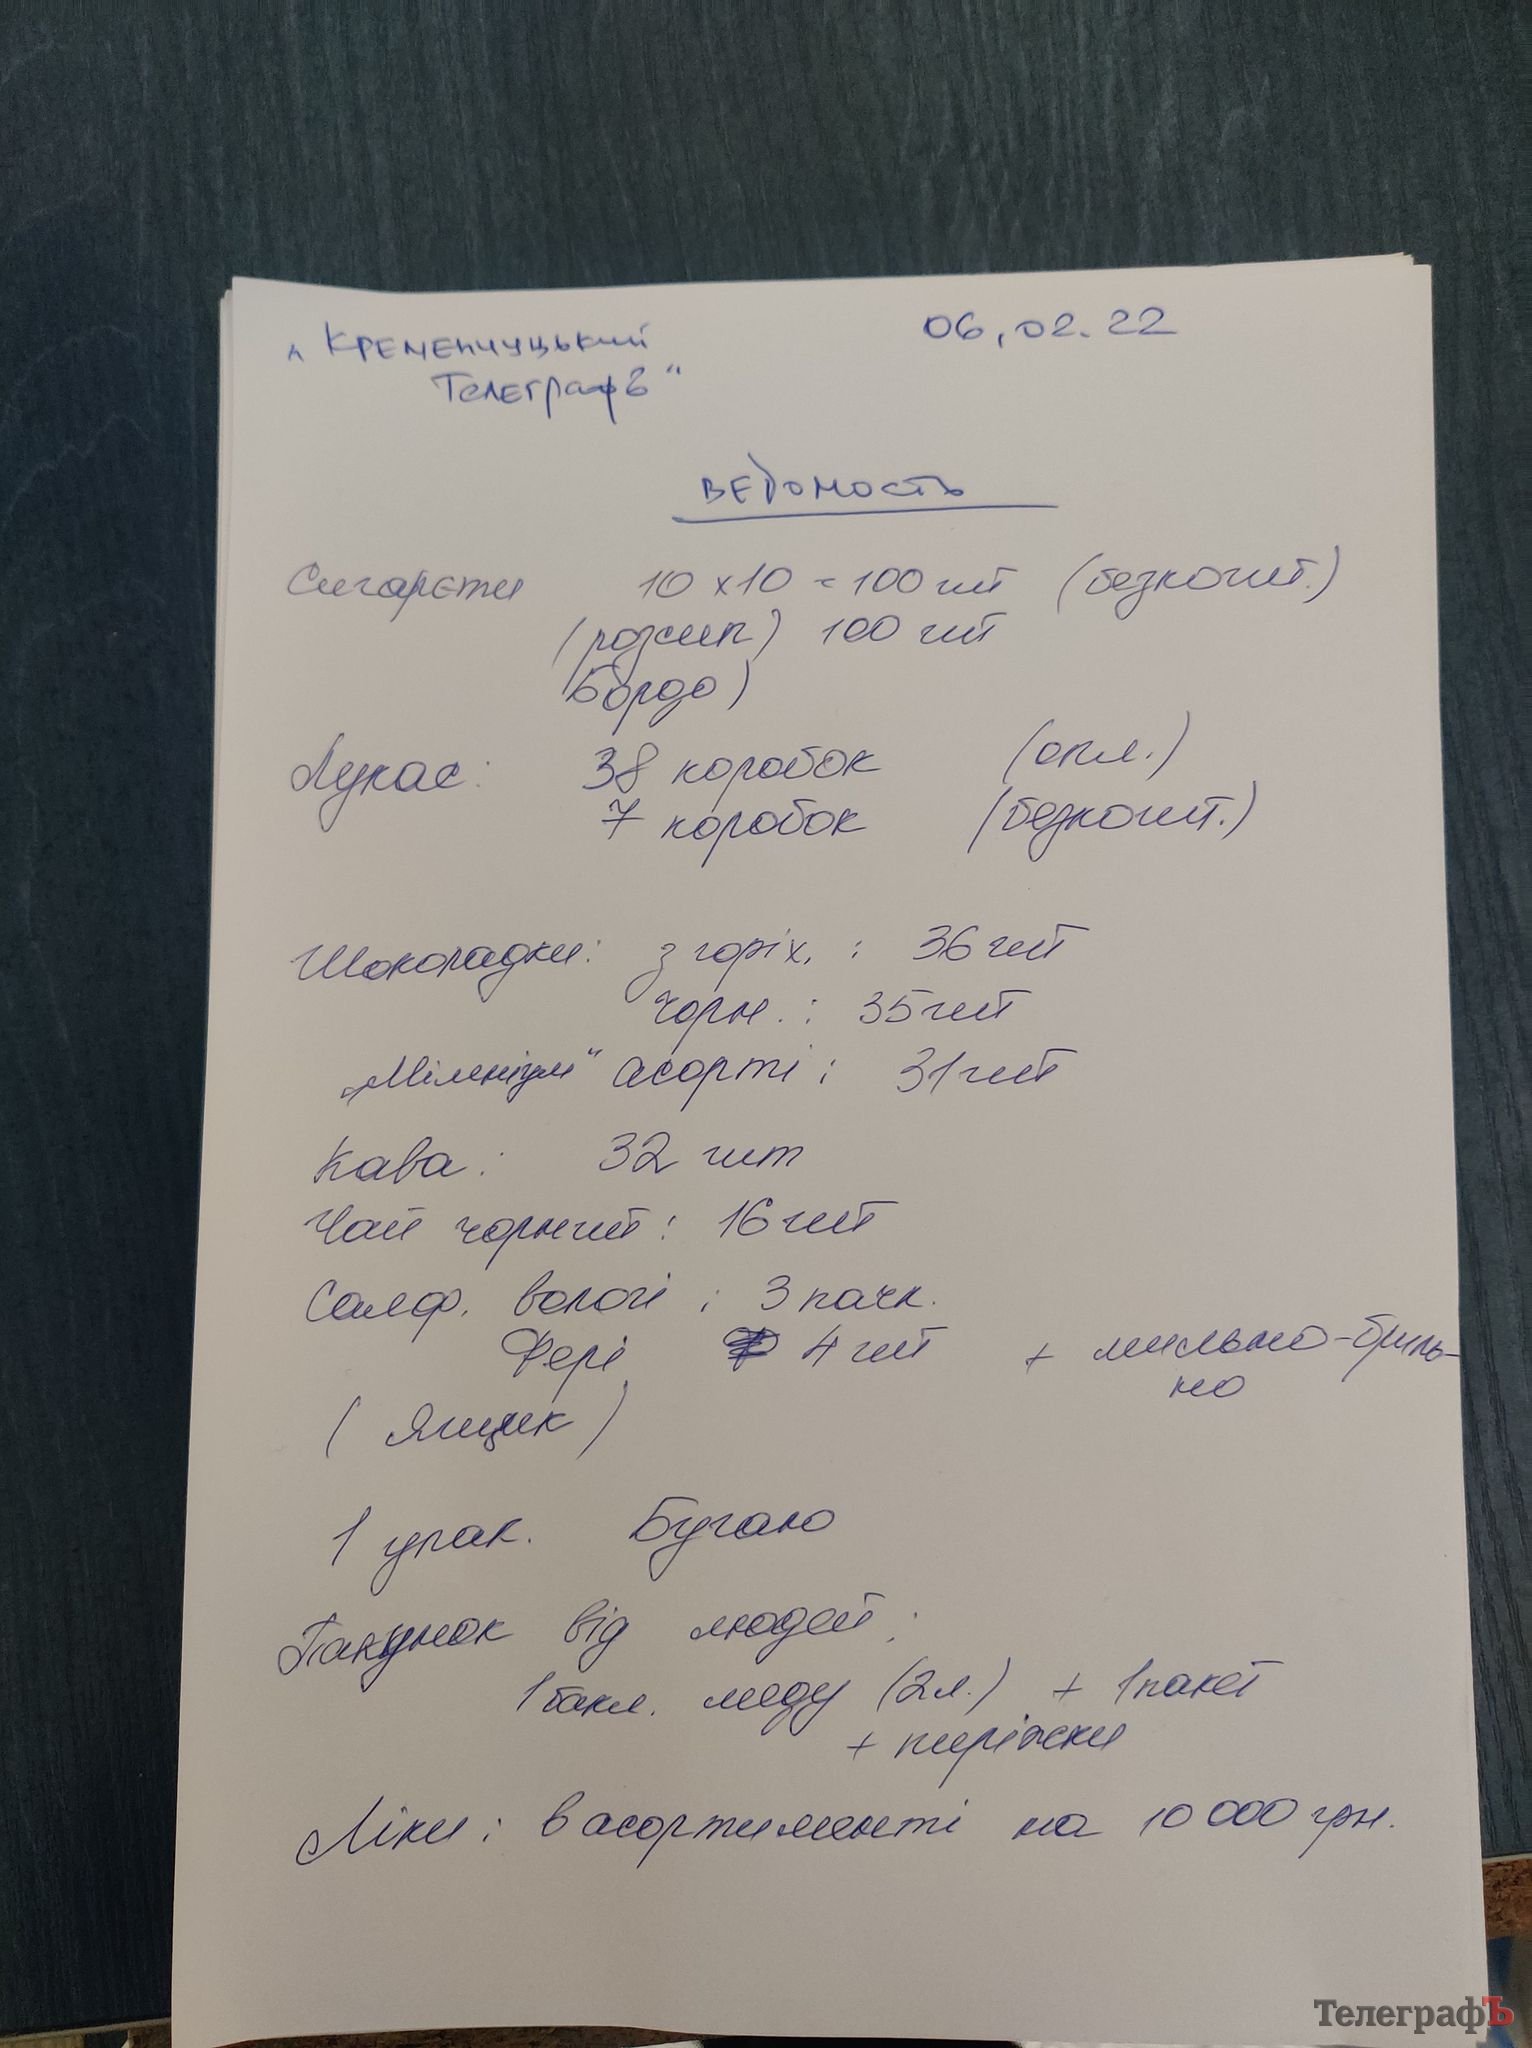 „Кременчуцький 06.02.22
Телеграфъ"
ведомость
Сигарети 10 x 10 = 100 шт (безкошт.)
(розсип) 100 шт
Бордо)
Лукас: 38 коробок (опл.)
7 коробок (безкошт.)
Шоколадки: з горіх. : 36 шт
чорн. : 35 шт
„Міленіум" асорті : 31 шт
Кава : 32 шт
Чай чорний : 16 шт
Салф. вологі : 3 пачк.
Фері 4 шт + мильно-риль-
но
(Ящик)
1 упак. Бугаю
Пакунок від людей :
1 бакл. меду (2л.) + 1 пакет
+ пиріжки
Ліки : в асортименті на 10 000 грн.
ТелеграфЪ